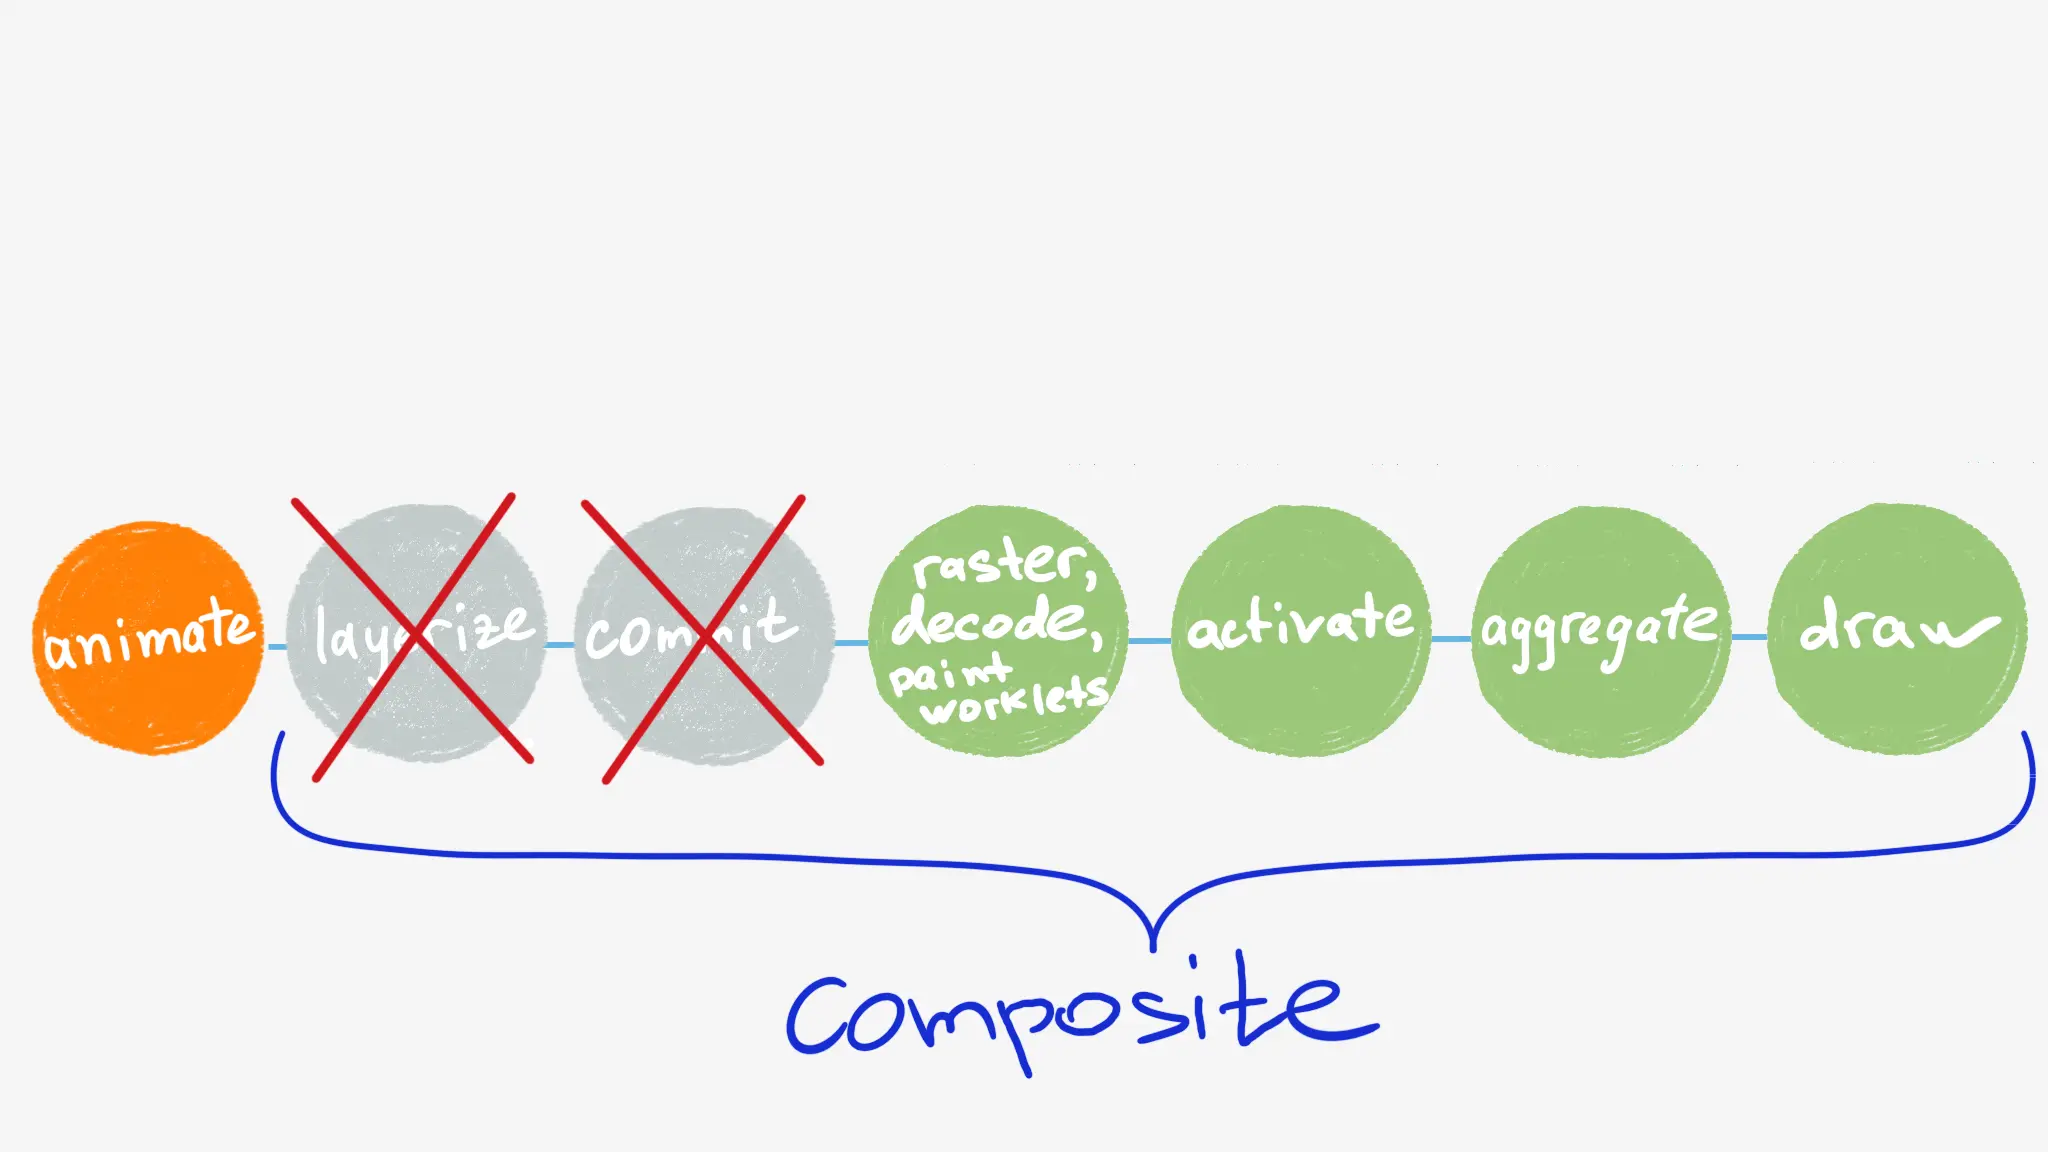 animate
layerize
commit
raster,
decode,
paint
worklets
activate
aggregate
draw
composite